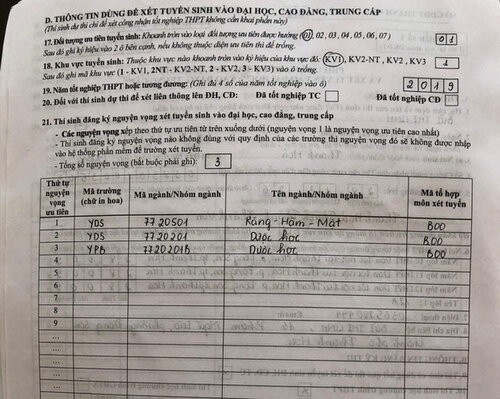 D. THÔNG TIN DÙNG ĐỂ XÉT TUYỂN SINH VÀO ĐẠI HỌC, CAO ĐẲNG, TRUNG CẤP
(Thí sinh dự thi chỉ để xét công nhận tốt nghiệp THPT không cần khai phần này)
17. Đối tượng ưu tiên tuyển sinh: Khoanh tròn vào loại đối tượng ưu tiên được hưởng (01, 02, 03, 04, 05, 06, 07) 01
Sau đó ghi ký hiệu vào 2 ô bên cạnh, nếu không thuộc diện ưu tiên thì để trống.
18. Khu vực tuyển sinh: Thuộc khu vực nào khoanh tròn vào ký hiệu của khu vực đó: KV1, KV2-NT, KV2, KV3 1
Sau đó ghi mã khu vực (1 - KV1, 2NT - KV2-NT, 2 - KV2, 3 - KV3) vào ô trống.
19. Năm tốt nghiệp THPT hoặc tương đương: (Ghi đủ 4 số của năm tốt nghiệp vào ô) 2019
20. Đối với thí sinh dự thi để xét liên thông lên ĐH, CĐ: Đã tốt nghiệp TC Đã tốt nghiệp CĐ
21. Thí sinh đăng ký nguyện vọng xét tuyển sinh vào đại học, cao đẳng, trung cấp
- Các nguyện vọng xếp theo thứ tự ưu tiên từ trên xuống dưới (nguyện vọng 1 là nguyện vọng ưu tiên cao nhất)
- Thí sinh đăng ký nguyện vọng nào không đúng với quy định của các trường thì nguyện vọng đó sẽ không được nhập
vào hệ thống phần mềm để trường xét tuyển.
- Tổng số nguyện vọng (bắt buộc phải ghi): 3
Thứ tự nguyện vọng ưu tiên Mã trường (chữ in hoa) Mã ngành/Nhóm ngành Tên ngành/Nhóm ngành Mã tổ hợp môn xét tuyển
1 YDS 7720501 Răng - Hàm - Mặt B00
2 YDS 7720201 Dược học B00
3 YPB 7720201B Dược học B00
4
5
6
7
8
9
...
...
...
...